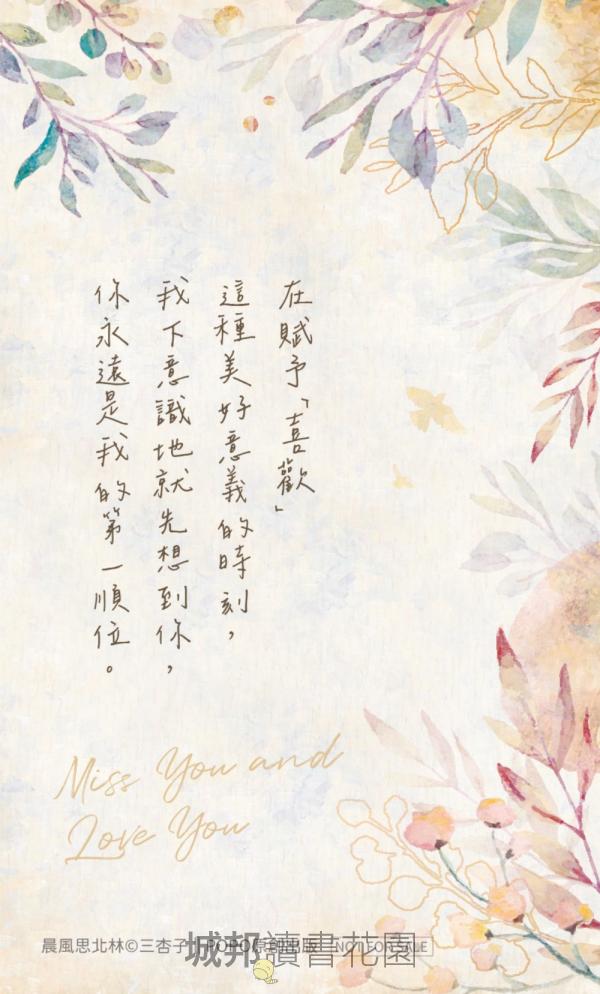 在賦予「喜歡」
這種美好意義的時刻，
我下意識地就先想到你，
你永遠是我的第一順位。
Miss You and
Love You
晨風思北林©三杏子 POPO原創出版 NOT FOR SALE
城邦讀書花園